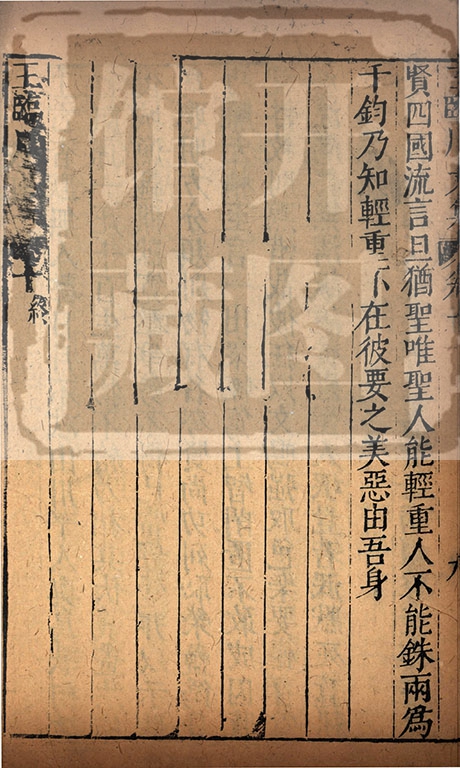 賢四國流言旦猶聖唯聖人能輕重人不能銖兩爲
千鈞乃知輕重不在彼要之美惡由吾身
王臨
十
終
九
开
馆
图
藏